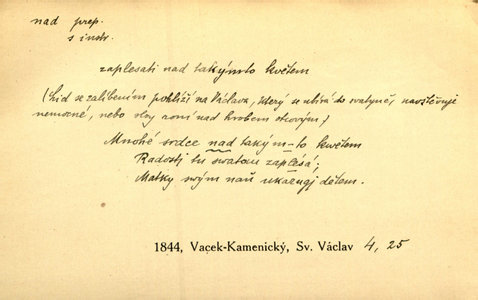 nad prep.
s instr.
zaplesati nad takýmto květem
(Lid se zalíbením pohlíží na Václava, který se ubírá do svatyně, navštěvuje
nemocné, nebo slzy roní nad hrobem otcovým,)
Mnohé srdce nad takým-to kwětem
Radostj tu swatou zaplésá;
Matky swým naň ukazugj dětem.
1844, Vacek-Kamenický, Sv. Václav 4, 25